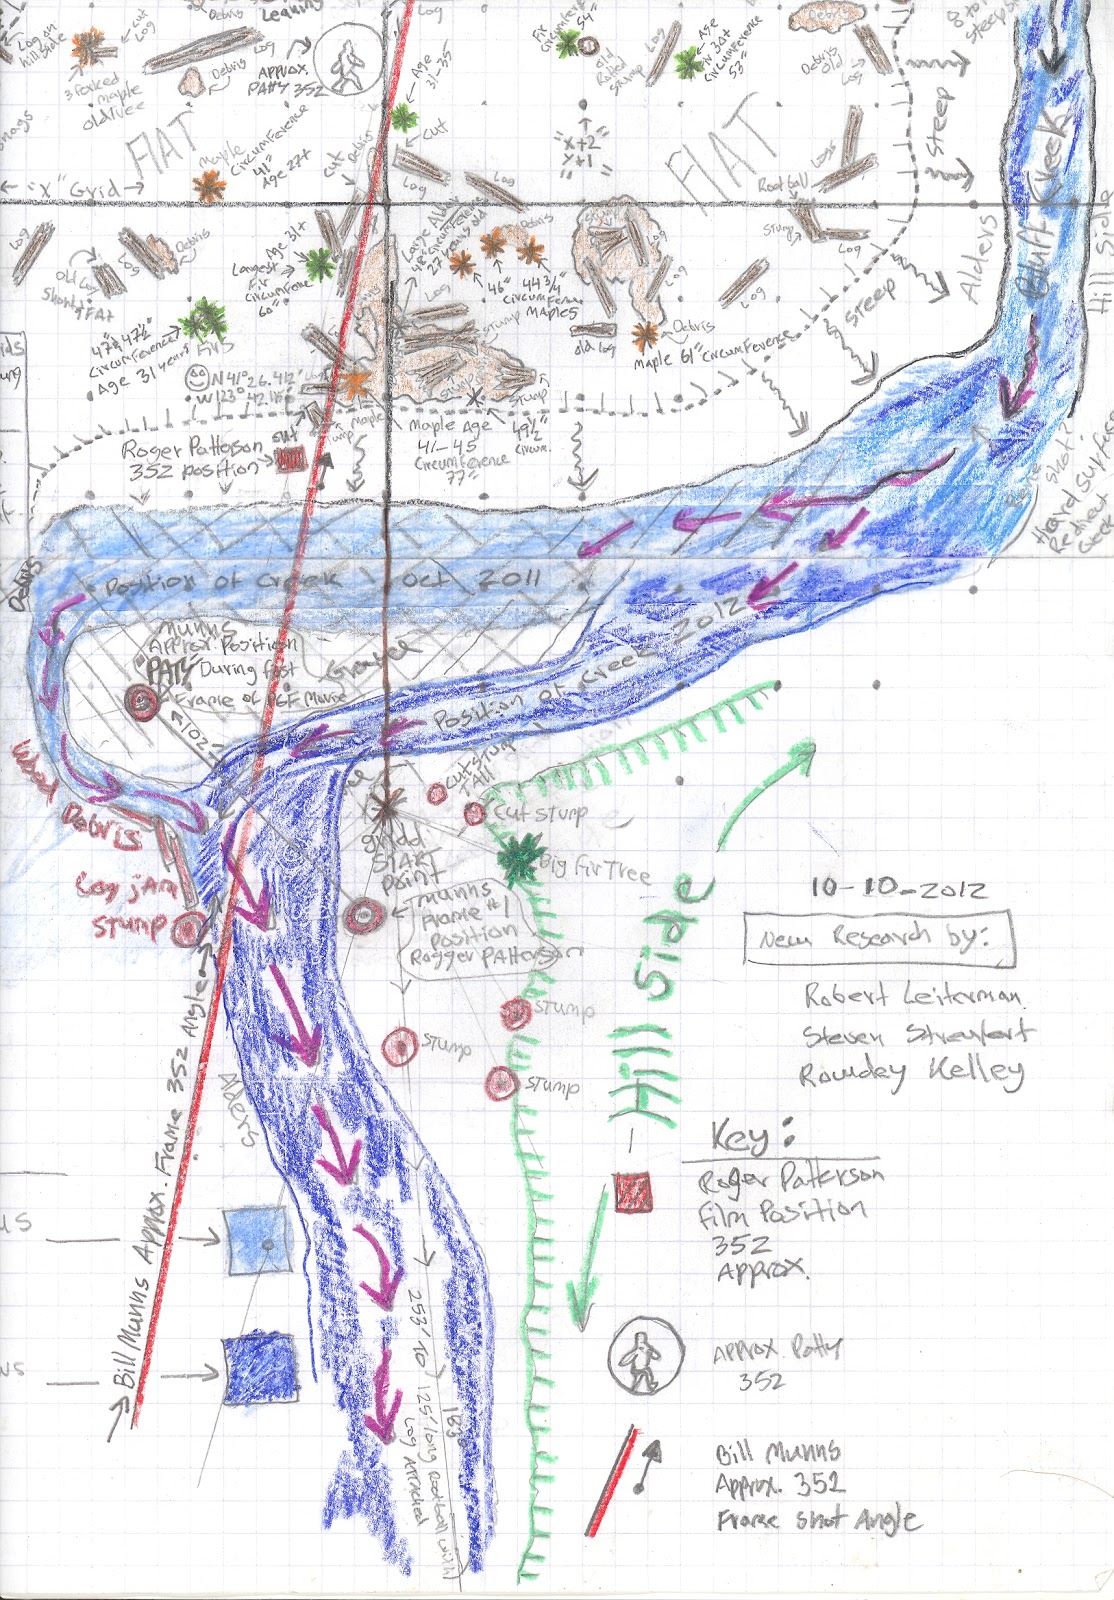 Leaning
Log
Debris
cut
Log
Log on
hill side
3 Forked
maple
old Tree
Debris
Log
Debris
APPROX.
PATTY 352
Age
31-35
cut
Fir
circumference
54"
old
Rotted
stump
Log
Age
30+
circumference
53"
Debris
Debris
old
Log
steep
FlAT
maple
circumference
41"
Age 27+
Debris
cut
Log
Log
"X+2"
"Y+1"
FlAT
Logs
Rootball
Stump
Log
Steep
Alders
Bluff Kreek
Hill Side
← "X" Grid →
Log
Old Log
Short & FAT
Log
Debris
Age 31+
Largest
Fir
circumference
60"
Large Alder
48" circumference
27 years old
Debris
46"
44 3/4"
circumference
MAPLES
Log
Log
Log
steep
47 & 47 1/2"
circumference
Age 31 years
Firs
N 41° 26.412'
Log
stump
old log
Debris
Maple 61" circumference
Stump
Stump
Maple
Maple Age
41-45
circumference
77"
49 1/2"
circum.
Roger Patterson
352 position
cut
Debris
Position of Creek Oct 2011
Munns
Approx. Position
PATTY During first
Frame of PGF Movie
Gravel
102'
Position of Creek 2012
Wood
Debris
Log jAm
Stump
cut stump
TAll
cut stump
Big Fir Tree
gridd
START
point
munns
Frame #1
Position
Rogger PAtterson
Hill Side
10-10-2012
New Research by:
Robert Leiterman
Steven Streufert
Rowdey Kelley
stump
stump
stump
Alders
Bill Munns Approx. Frame 352 Angle
Key:
Roger Patterson
Film Position
352
Approx.
APPROX. Patty
352
Bill Munns
Approx. 352
Frame Shot Angle
253'-10"
125' long Rootball with
Log Attached
183'